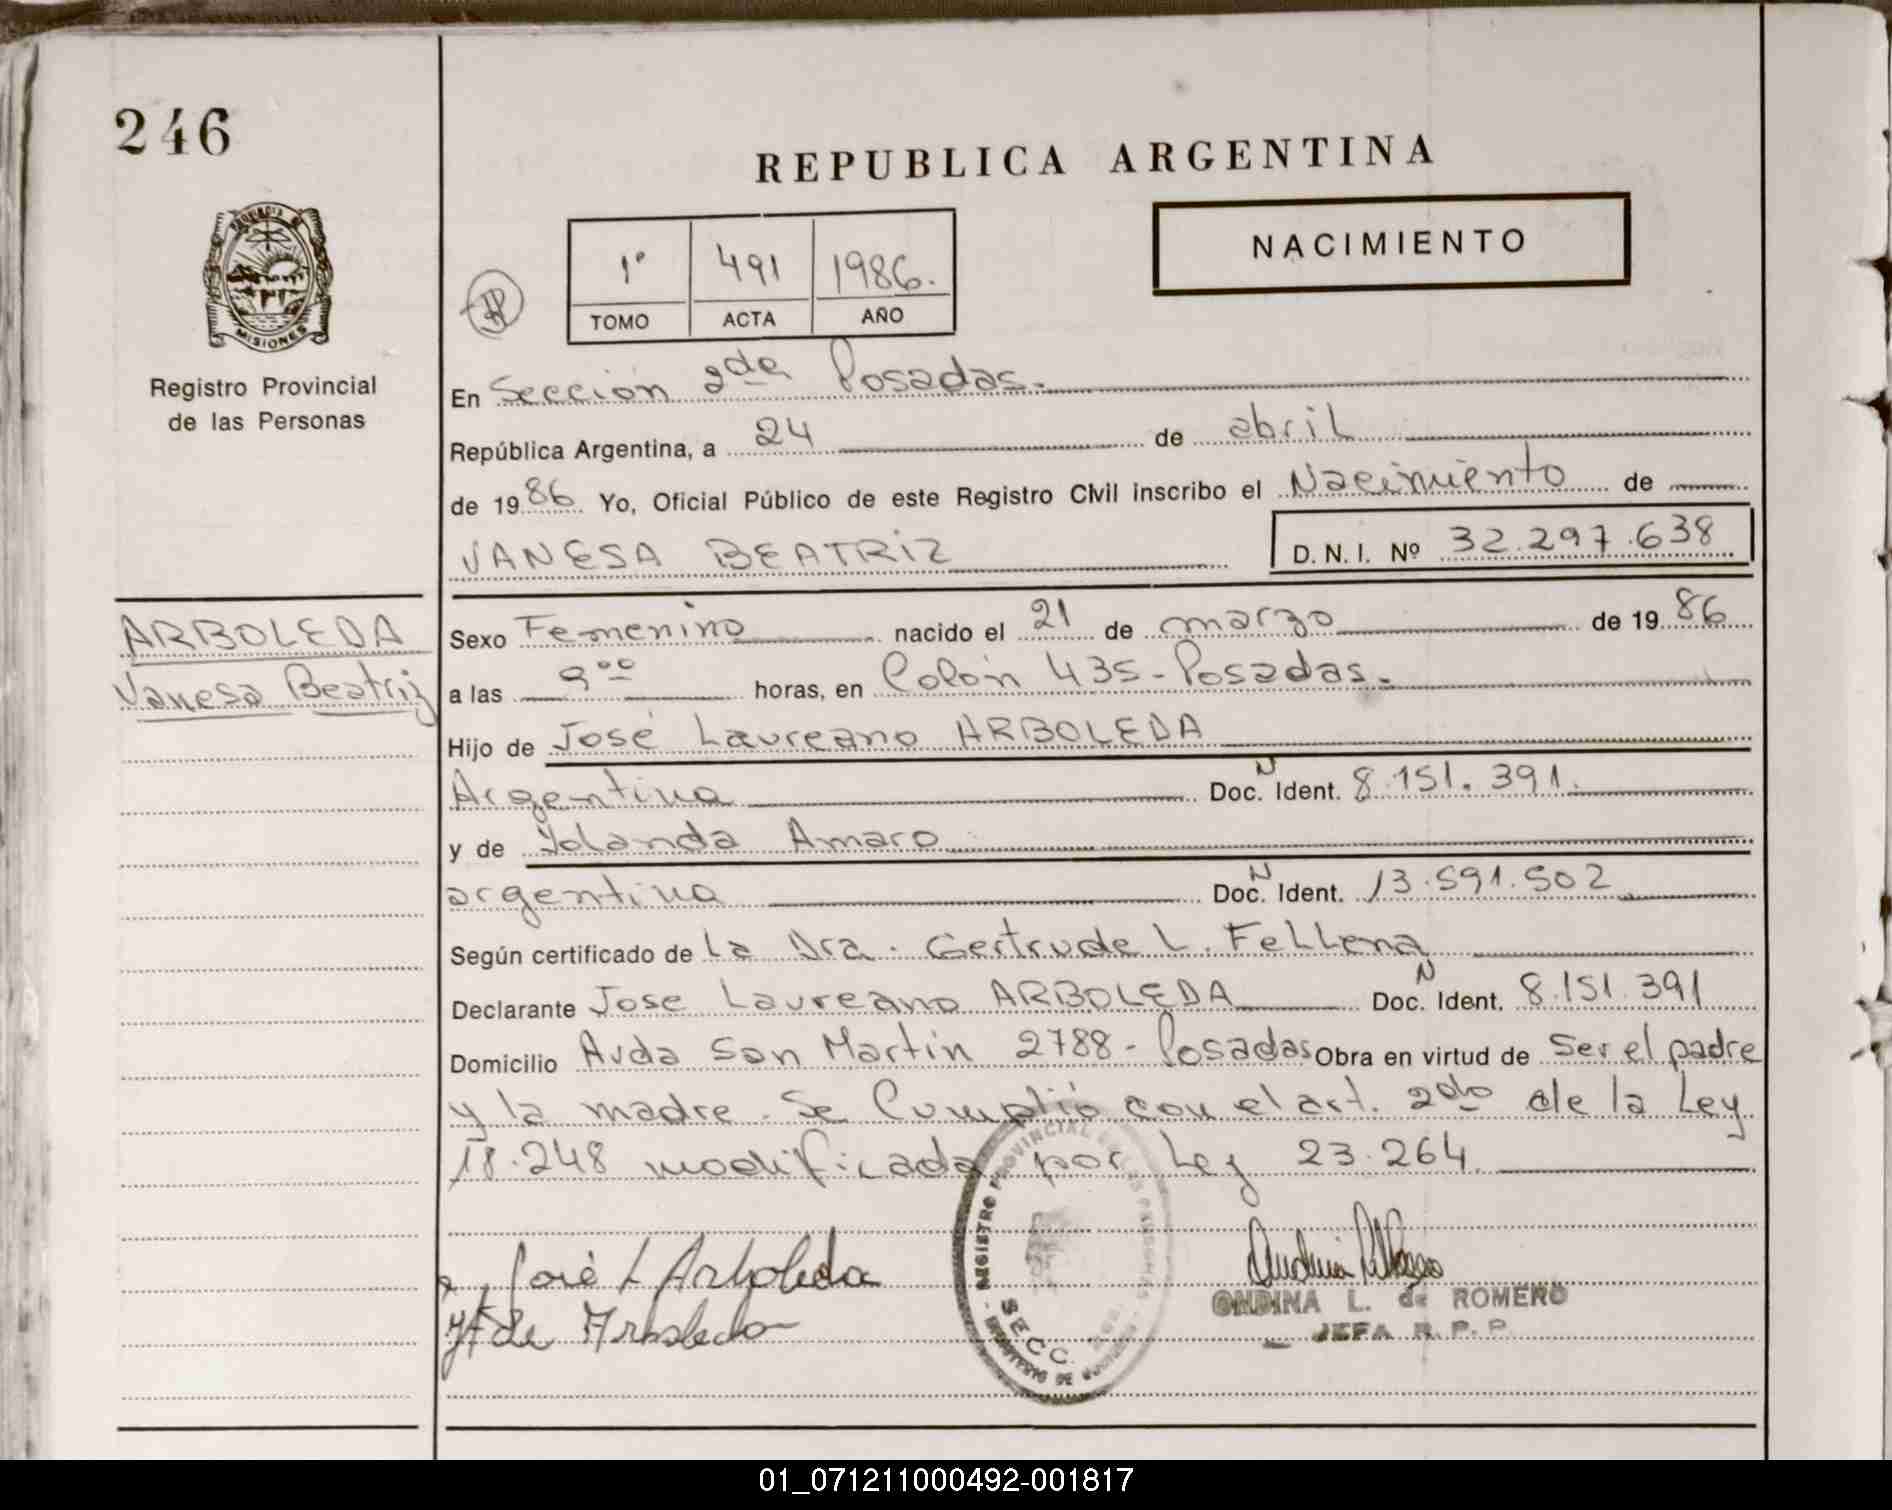 246
REPUBLICA ARGENTINA
NACIMIENTO
1º 491 1986.
TOMO ACTA AÑO
PROVINCIA DE
MISIONES
Registro Provincial
de las Personas
En Sección 2da Posadas.
República Argentina, a 24 de abril
de 1986 Yo, Oficial Público de este Registro Civil inscribo el Nacimiento de
VANESA BEATRIZ D.N.I. Nº 32.297.638
ARBOLEDA
Vanesa Beatriz
Sexo Femenino nacido el 21 de marzo de 1986
a las 9ºº horas, en Colón 435-Posadas.
Hijo de José Laureano ARBOLEDA
Argentina Doc. N Ident. 8.151.391.
y de Yolanda Amaro
argentina Doc. N Ident. 13.591.502
Según certificado de La Dra. Gertrude L. Fellena
Declarante Jose Laureano ARBOLEDA Doc. N Ident. 8.151.391
Domicilio Avda San Martín 2788-Posadas Obra en virtud de Ser el padre
y la madre. Se Cumplió con el art. 2do de la Ley
18.248 modificada por Ley 23.264
REGISTRO PROVINCIAL DE LAS PERSONAS
SECC.
MINISTERIO DE
José L Arboleda
de Arboleda
ONDINA L. de ROMERO
JEFA R.P.P.
01_071211000492-001817